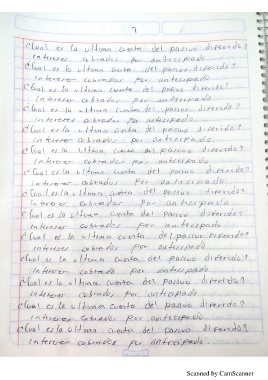 7
¿Cual es la ultima cuenta del pasivo diferido?
Intereses cobrados por anticipado
¿Cual es la ultima cuenta del pasivo diferido?
Intereses cobrados por anticipado
¿Cual es la ultima cuenta del pasivo diferido?
Intereses cobrados por anticipado
¿Cual es la ultima cuenta del pasivo diferido?
Intereses cobrados por anticipado
¿Cual es la ultima cuenta del pasivo diferido?
Intereses cobrados por anticipado
¿Cual es la ultima cuenta del pasivo diferido?
Intereses cobrados por anticipado
¿Cual es la ultima cuenta del pasivo diferido?
Intereses cobrados por anticipado
¿Cual es la ultima cuenta del pasivo diferido?
Intereses cobrados por anticipado
¿Cual es la ultima cuenta del pasivo diferido?
Intereses cobrados por anticipado
¿Cual es la ultima cuenta del pasivo diferido?
Intereses cobrados por anticipado
¿Cual es la ultima cuenta del pasivo diferido?
Intereses cobrados por anticipado
¿Cual es la ultima cuenta del pasivo diferido?
Intereses cobrados por anticipado
¿Cual es la ultima cuenta del pasivo diferido?
Intereses cobrados por anticipado
¿Cual es la ultima cuenta del pasivo diferido?
Intereses cobrados por anticipado.
Scanned by CamScanner